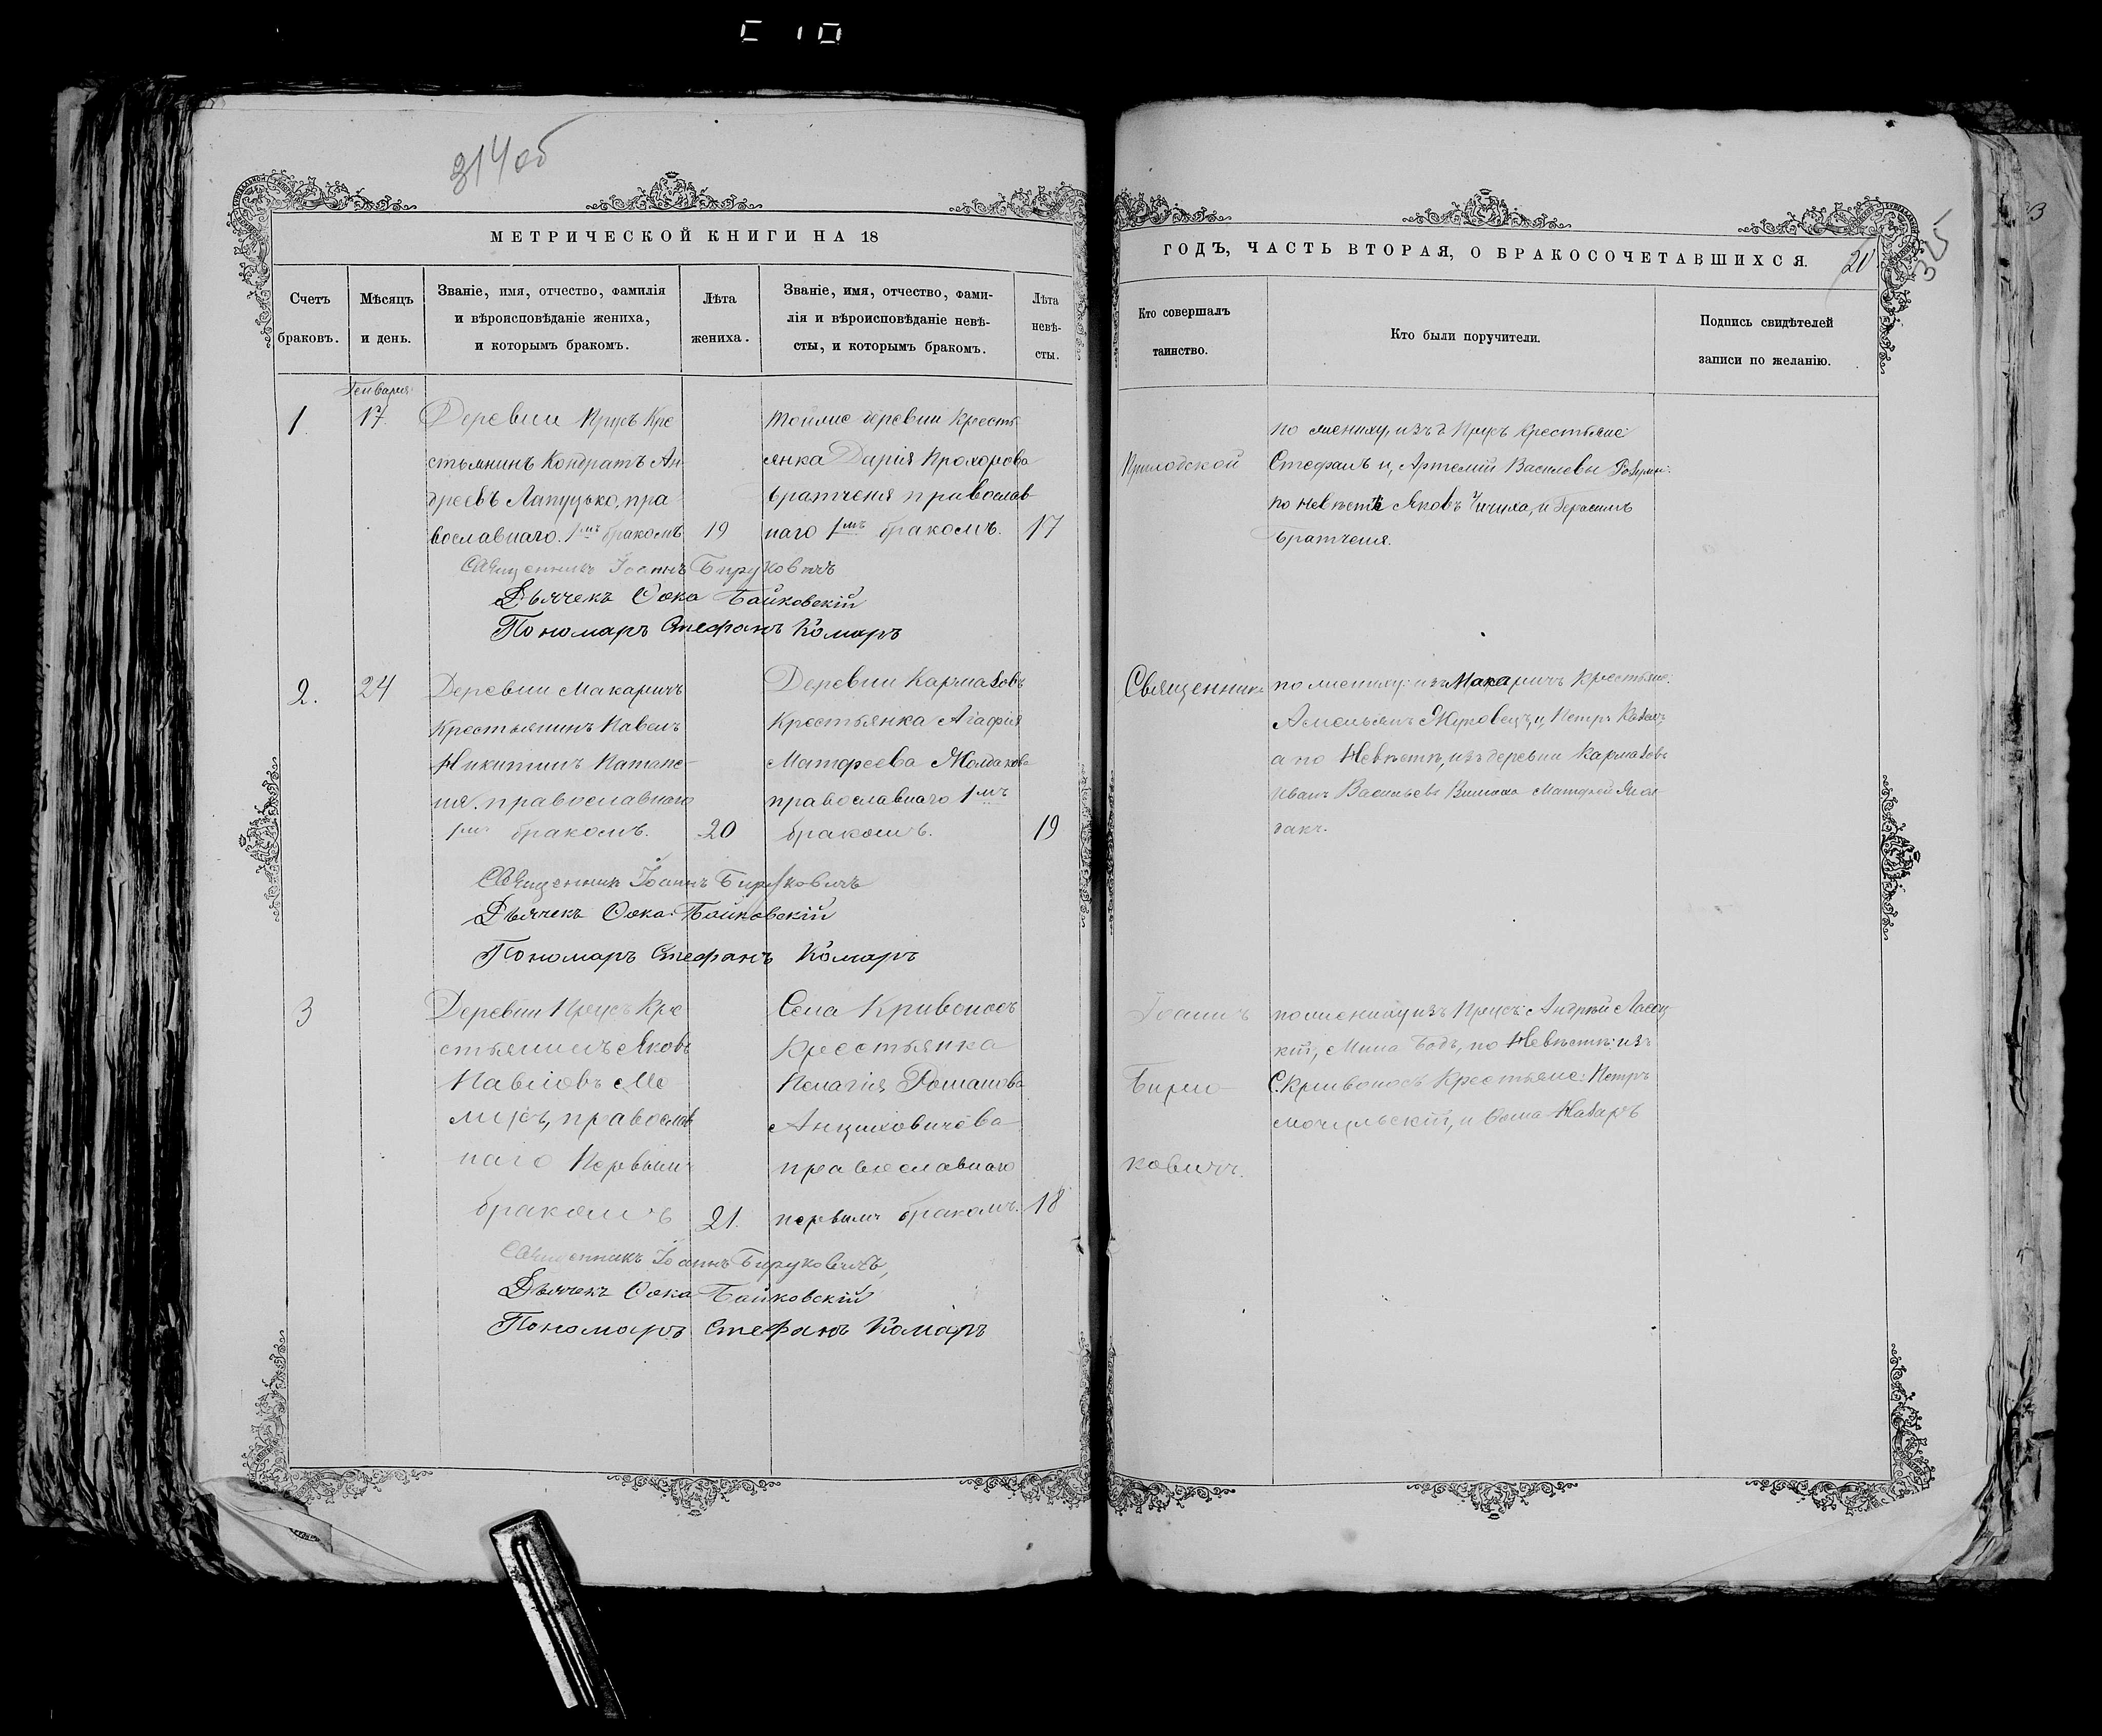 314об
МЕТРИЧЕСКОЙ КНИГИ НА 18
Счетъ браковъ.
Мѣсяцъ и день.
Званіе, имя, отчество, фамилія
и вѣроисповѣданіе жениха,
и которымъ бракомъ.
Лѣта жениха.
Званіе, имя, отчество, фами-
лія и вѣроисповѣданіе невѣ-
сты, и которымъ бракомъ.
Лѣта невѣ-
сты.
Генваря
1. 17.
Деревни Прусъ Кре
стьянинъ Кондратъ Ан-
дреевъ Лапуцько, пра
вославнаго. 1мъ бракомъ
19
тойже деревни Кресть
янка Дарія Прохорова
Братченя православ-
наго 1мъ бракомъ.
17
Священникъ Іоаннъ Бируковичъ
Дьячекъ Ѳока Байковскій
Пономаръ Стефанъ Комаръ
2. 24
Деревни Макаричъ
Крестьянинъ Павелъ
Никитинъ Патапе-
ня православнаго
1мъ бракомъ.
20
Деревни Кармазовъ
Крестьянка Агафія
Матфеева
православнаго 1мъ
бракомъ.
19
Священникъ Іоаннъ Бируковичъ
Дьячекъ Ѳока Байковскій
Пономаръ Стефанъ Комаръ
3
Деревни Прусъ Кре
стьянинъ Яковъ
Павловъ
православ
наго Первымъ
бракомъ
21.
Села Кривоносъ
Крестьянка
Пелагія Романова
Анциховичова
православнаго
первымъ бракомъ.
18
Священникъ Іоаннъ Бируковичъ,
Дьячекъ Ѳока Байковскій
Пономаръ Стефанъ Комаръ
ГОДЪ, ЧАСТЬ ВТОРАЯ, О БРАКОСОЧЕТАВШИХСЯ.
Кто совершалъ
таинство.
Кто были поручители.
Подпись свидѣтелей
записи по желанію.
Приходской
Священникъ
Іоаннъ
Бирю
ковичъ.
по жениху, изъ д Прусъ Крестьяне:
Стефанъ и, Артемій Василевы
по невѣстѣ Яковъ и Герасимъ
Братченя.
по жениху: изъ Макаричъ Крестьяне:
Жуковецъ, и, Петръ
а по Невѣстѣ, изъ деревни Кармазовъ
Иванъ Васильевъ Матфей
по жениху изъ Прусъ: Андрей Ласоц-
кій, Мина Бодъ, по Невѣстѣ: изъ
С. Кривоносъ Крестьяне: Петръ
Мочульскій, и Ѳома Назаръ